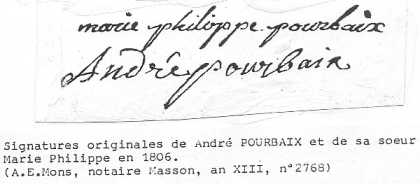 marie philippe pourbaix
André pourbaix
Signatures originales de André POURBAIX et de sa soeur
Marie Philippe en 1806.
(A.E.Mons, notaire Masson, an XIII, n°2768)